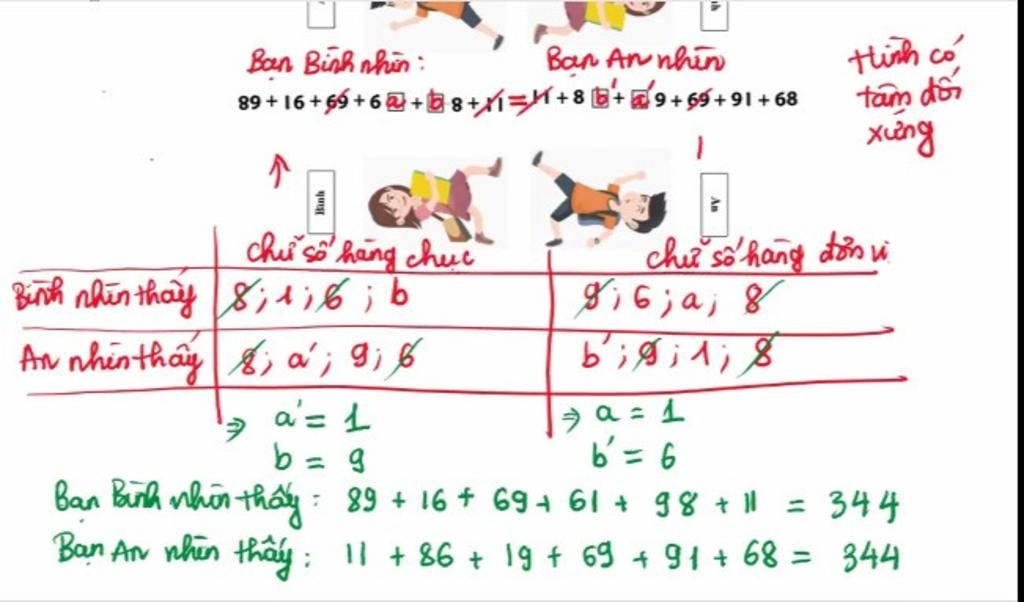 Bạn Bình nhìn: Bạn An nhìn
89 + 16 + 69 + 6 a + b 8 + 11 = 11 + 8 b' + a' 9 + 69 + 91 + 68
Hình có
tâm đối
xứng
Bình An
Chữ số hàng chục chữ số hàng đơn vị
Bình nhìn thấy 8; 1; 6; b 9; 6; a; 8
An nhìn thấy 8; a'; 9; 6 b'; 9; 1; 8
⇒ a' = 1 ⇒ a = 1
b = 9 b' = 6
Bạn Bình nhìn thấy: 89 + 16 + 69 + 61 + 98 + 11 = 344
Bạn An nhìn thấy: 11 + 86 + 19 + 69 + 91 + 68 = 344